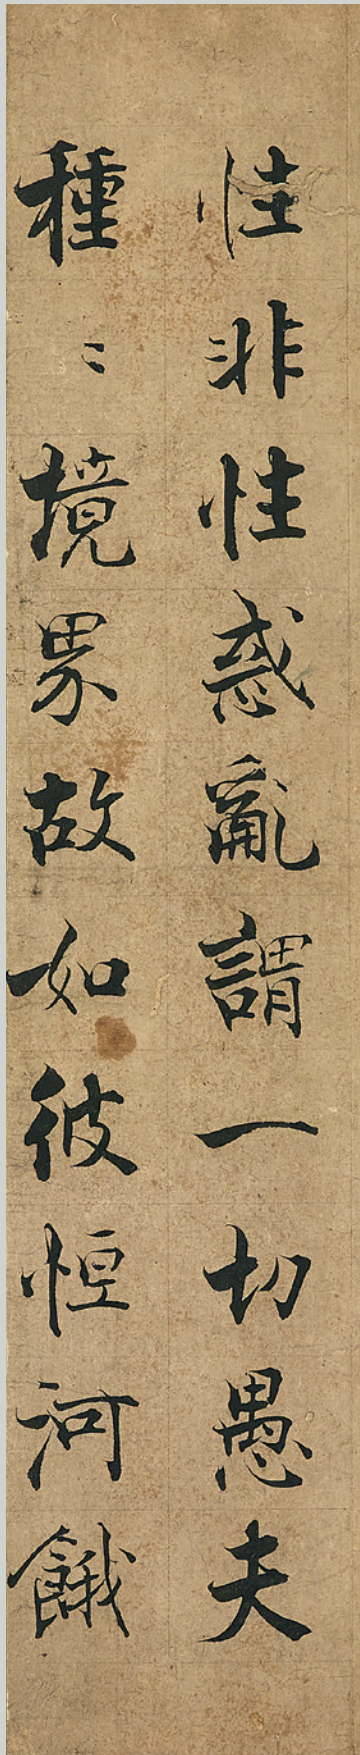 性非性惑亂謂一切愚夫
種〻境界故如彼恒河餓